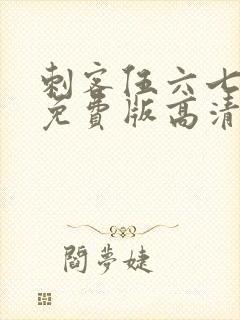 刺客伍六七
免費版高清
閻夢婕